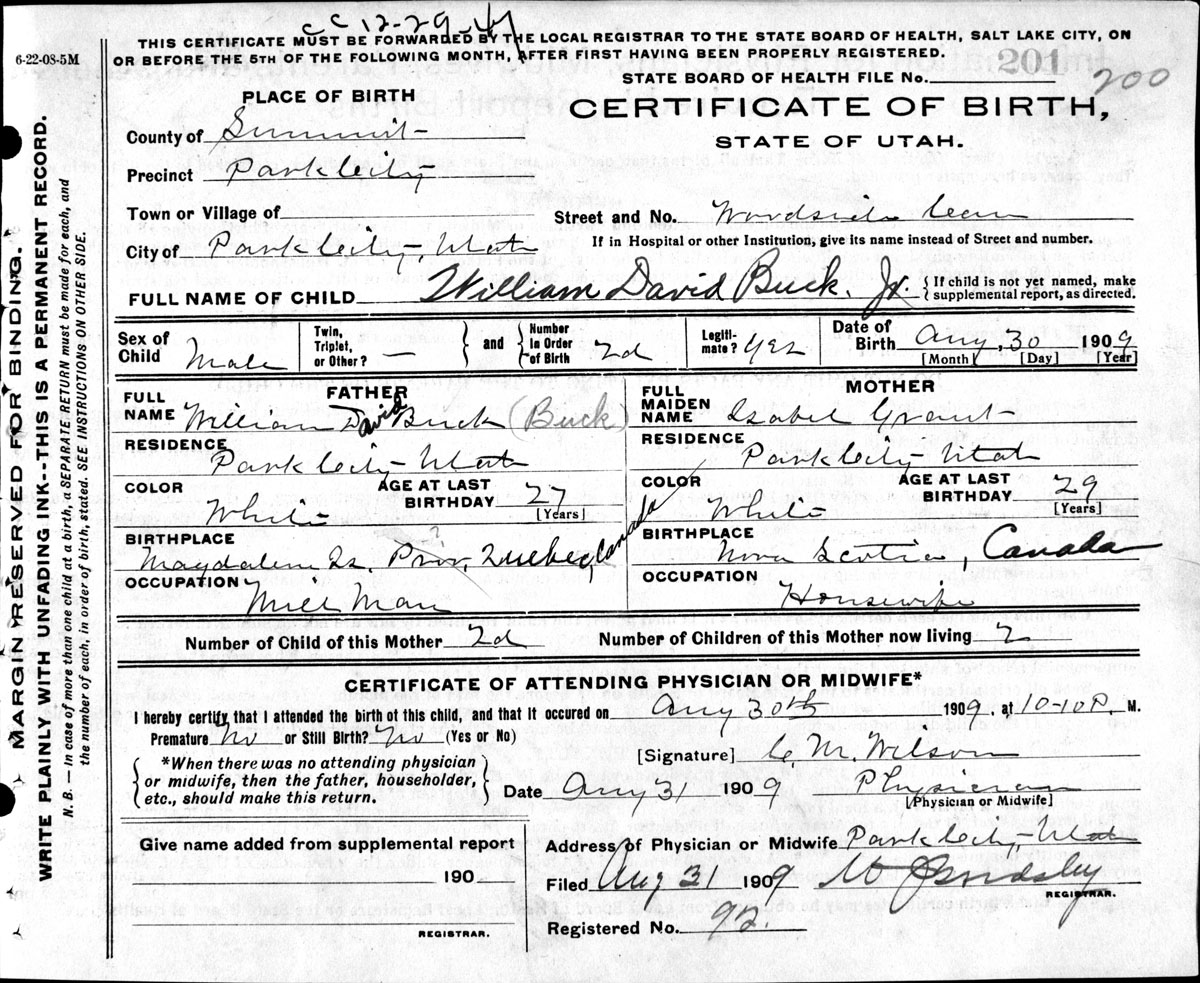 CC 12-29-41
6-22-08-5M
THIS CERTIFICATE MUST BE FORWARDED BY THE LOCAL REGISTRAR TO THE STATE BOARD OF HEALTH, SALT LAKE CITY, ON
OR BEFORE THE 5TH OF THE FOLLOWING MONTH, AFTER FIRST HAVING BEEN PROPERLY REGISTERED.
STATE BOARD OF HEALTH FILE No. 201 200
PLACE OF BIRTH
CERTIFICATE OF BIRTH,
STATE OF UTAH.
County of Summit
Precinct Park City
Town or Village of
Street and No. Woodside
City of Park City Utah
If in Hospital or other Institution, give its name instead of Street and number.
FULL NAME OF CHILD William David Buck. Jr. { If child is not yet named, make
supplemental report, as directed.
Sex of Child Male
Twin, Triplet, or Other? —
} and {
Number in Order of Birth 2d
Legiti- mate? yes
Date of Birth Aug, 30 1909
[Month] [Day] [Year]
FATHER
FULL NAME William David Buck (Buck)
RESIDENCE
Park City Utah
COLOR White
AGE AT LAST BIRTHDAY 27
[Years]
BIRTHPLACE
Magdalen Is. Prov. Quebec, Canada
OCCUPATION
Mill Man
MOTHER
FULL MAIDEN NAME Isabel Grant
RESIDENCE
Park City Utah
COLOR White
AGE AT LAST BIRTHDAY 29
[Years]
BIRTHPLACE
Nova Scotia, Canada
OCCUPATION
Housewife
Number of Child of this Mother 2d Number of Children of this Mother now living 2
CERTIFICATE OF ATTENDING PHYSICIAN OR MIDWIFE*
I hereby certify that I attended the birth of this child, and that it occured on Aug 30th 1909, at 10-10 P. M.
Premature No or Still Birth? No (Yes or No)
{ *When there was no attending physician
or midwife, then the father, householder,
etc., should make this return. }
[Signature] C. M. Wilson
Date Aug 31 1909 Physician
[Physician or Midwife]
Give name added from supplemental report
190
REGISTRAR.
Address of Physician or Midwife Park City, Utah
Filed Aug 31 1909
REGISTRAR.
Registered No. 92.
MARGIN RESERVED FOR BINDING.
WRITE PLAINLY WITH UNFADING INK--THIS IS A PERMANENT RECORD.
N. B. — In case of more than one child at a birth, a SEPARATE RETURN must be made for each, and
the number of each, in order of birth, stated. SEE INSTRUCTIONS ON OTHER SIDE.